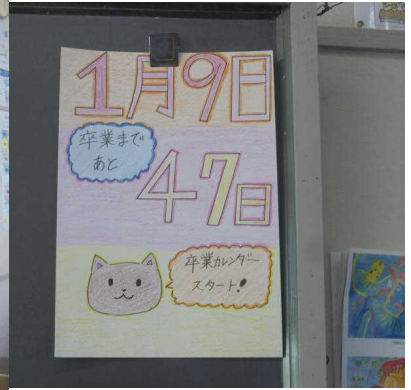 1月9日
卒業まで
あと
47日
卒業カレンダー
スタート!